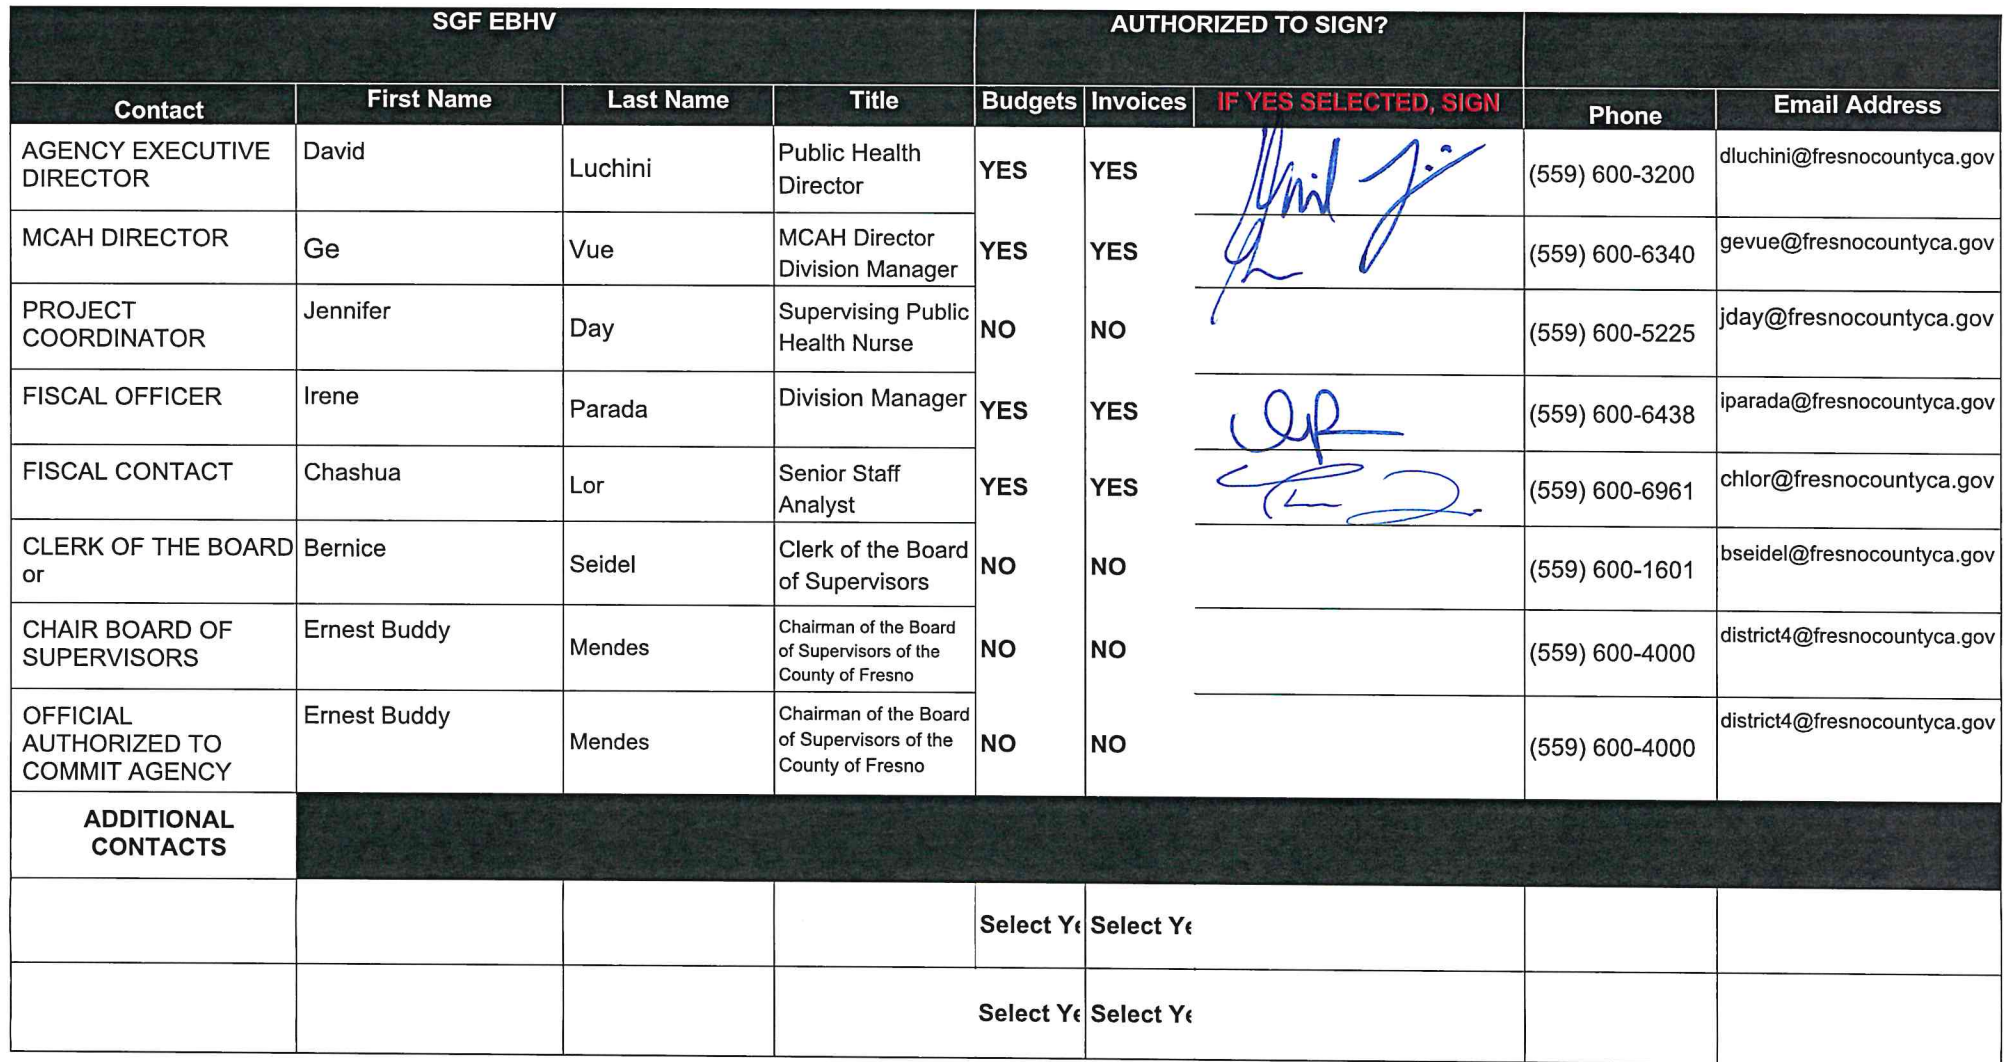 SGF EBHV AUTHORIZED TO SIGN?
Contact First Name Last Name Title Budgets Invoices IF YES SELECTED, SIGN Phone Email Address
AGENCY EXECUTIVE
DIRECTOR
David
Luchini
Public Health
Director
YES
YES
(559) 600-3200
dluchini@fresnocountyca.gov
MCAH DIRECTOR
Ge
Vue
MCAH Director
Division Manager
YES
YES
(559) 600-6340
gevue@fresnocountyca.gov
PROJECT
COORDINATOR
Jennifer
Day
Supervising Public
Health Nurse
NO
NO
(559) 600-5225
jday@fresnocountyca.gov
FISCAL OFFICER
Irene
Parada
Division Manager
YES
YES
(559) 600-6438
iparada@fresnocountyca.gov
FISCAL CONTACT
Chashua
Lor
Senior Staff
Analyst
YES
YES
(559) 600-6961
chlor@fresnocountyca.gov
CLERK OF THE BOARD
or
Bernice
Seidel
Clerk of the Board
of Supervisors
NO
NO
(559) 600-1601
bseidel@fresnocountyca.gov
CHAIR BOARD OF
SUPERVISORS
Ernest Buddy
Mendes
Chairman of the Board
of Supervisors of the
County of Fresno
NO
NO
(559) 600-4000
district4@fresnocountyca.gov
OFFICIAL
AUTHORIZED TO
COMMIT AGENCY
Ernest Buddy
Mendes
Chairman of the Board
of Supervisors of the
County of Fresno
NO
NO
(559) 600-4000
district4@fresnocountyca.gov
ADDITIONAL
CONTACTS
Select Ye Select Ye
Select Ye Select Ye